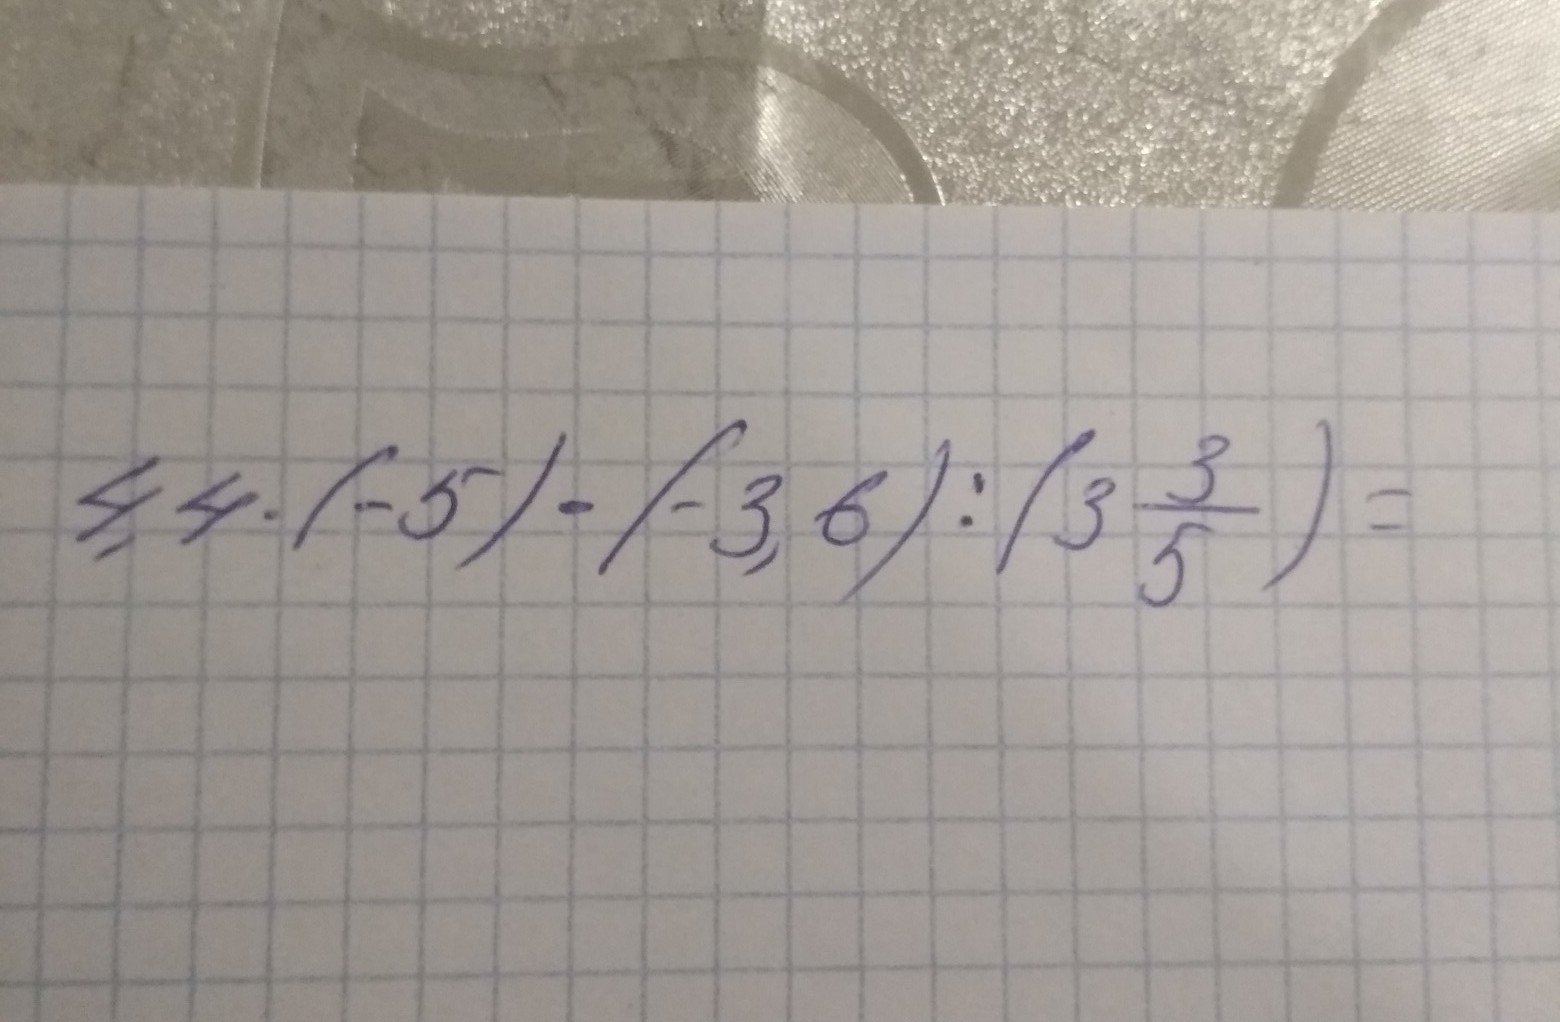 4,4·(-5)-(-3,6):(3 3/5)=